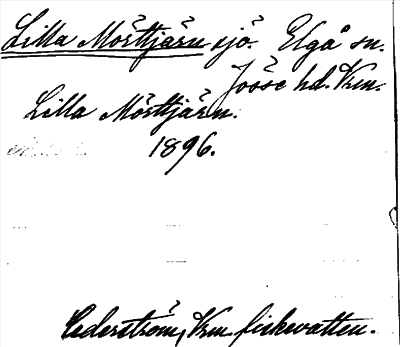 Lilla Mörttjärn sjö. Elgå sn.
Jösse hd. Vrm.
Lilla Mörttjärn.
1896.
Cederström, Vrm fiskevatten.